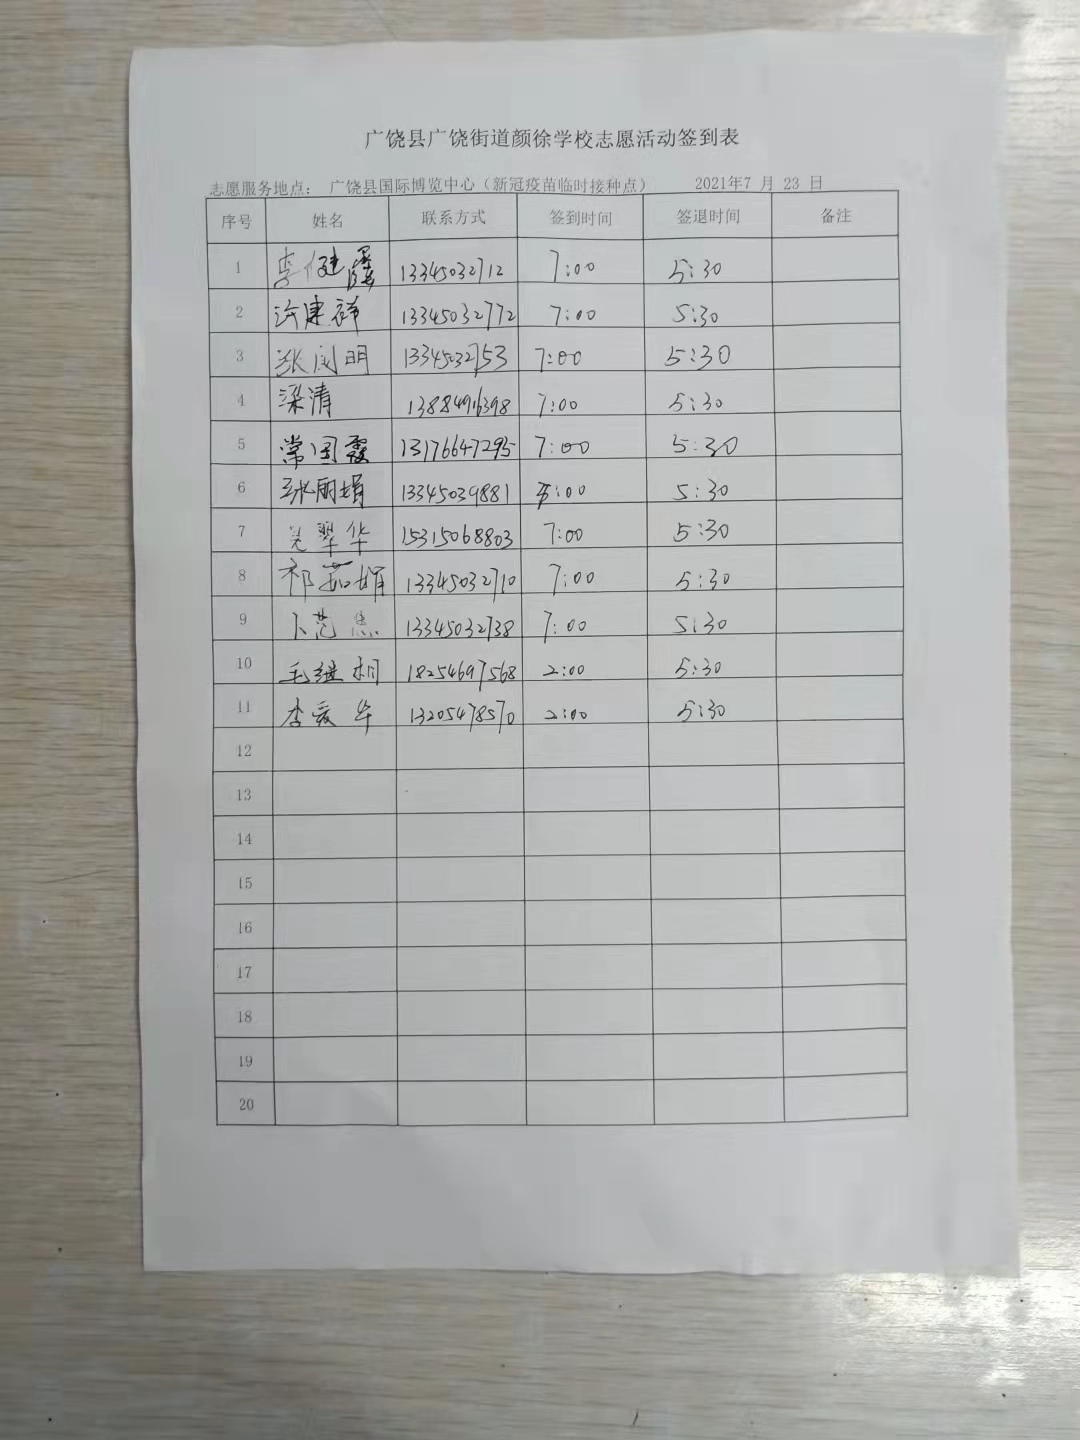 广饶县广饶街道颜徐学校志愿活动签到表
志愿服务地点： 广饶县国际博览中心（新冠疫苗临时接种点） 2021年7 月 23 日
序号 姓名 联系方式 签到时间 签退时间 备注
1 李健 13345032712 7:00 5:30
2 许建祥 13345032772 7:00 5:30
3 张国明 13345032753 7:00 5:30
4 梁清 13884916398 7:00 5:30
5 常国霞 13176647295 7:00 5:30
6 张丽娟 13345039881 :00 5:30
7 翠华 15315068803 7:00 5:30
8 祁茹娟 13345032710 7:00 5:30
9 卜范 13345032738 7:00 5:30
10 毛继 18254697568 2:00 5:30
11 李爱华 13205478570 2:00 5:30
12
13
14
15
16
17
18
19
20